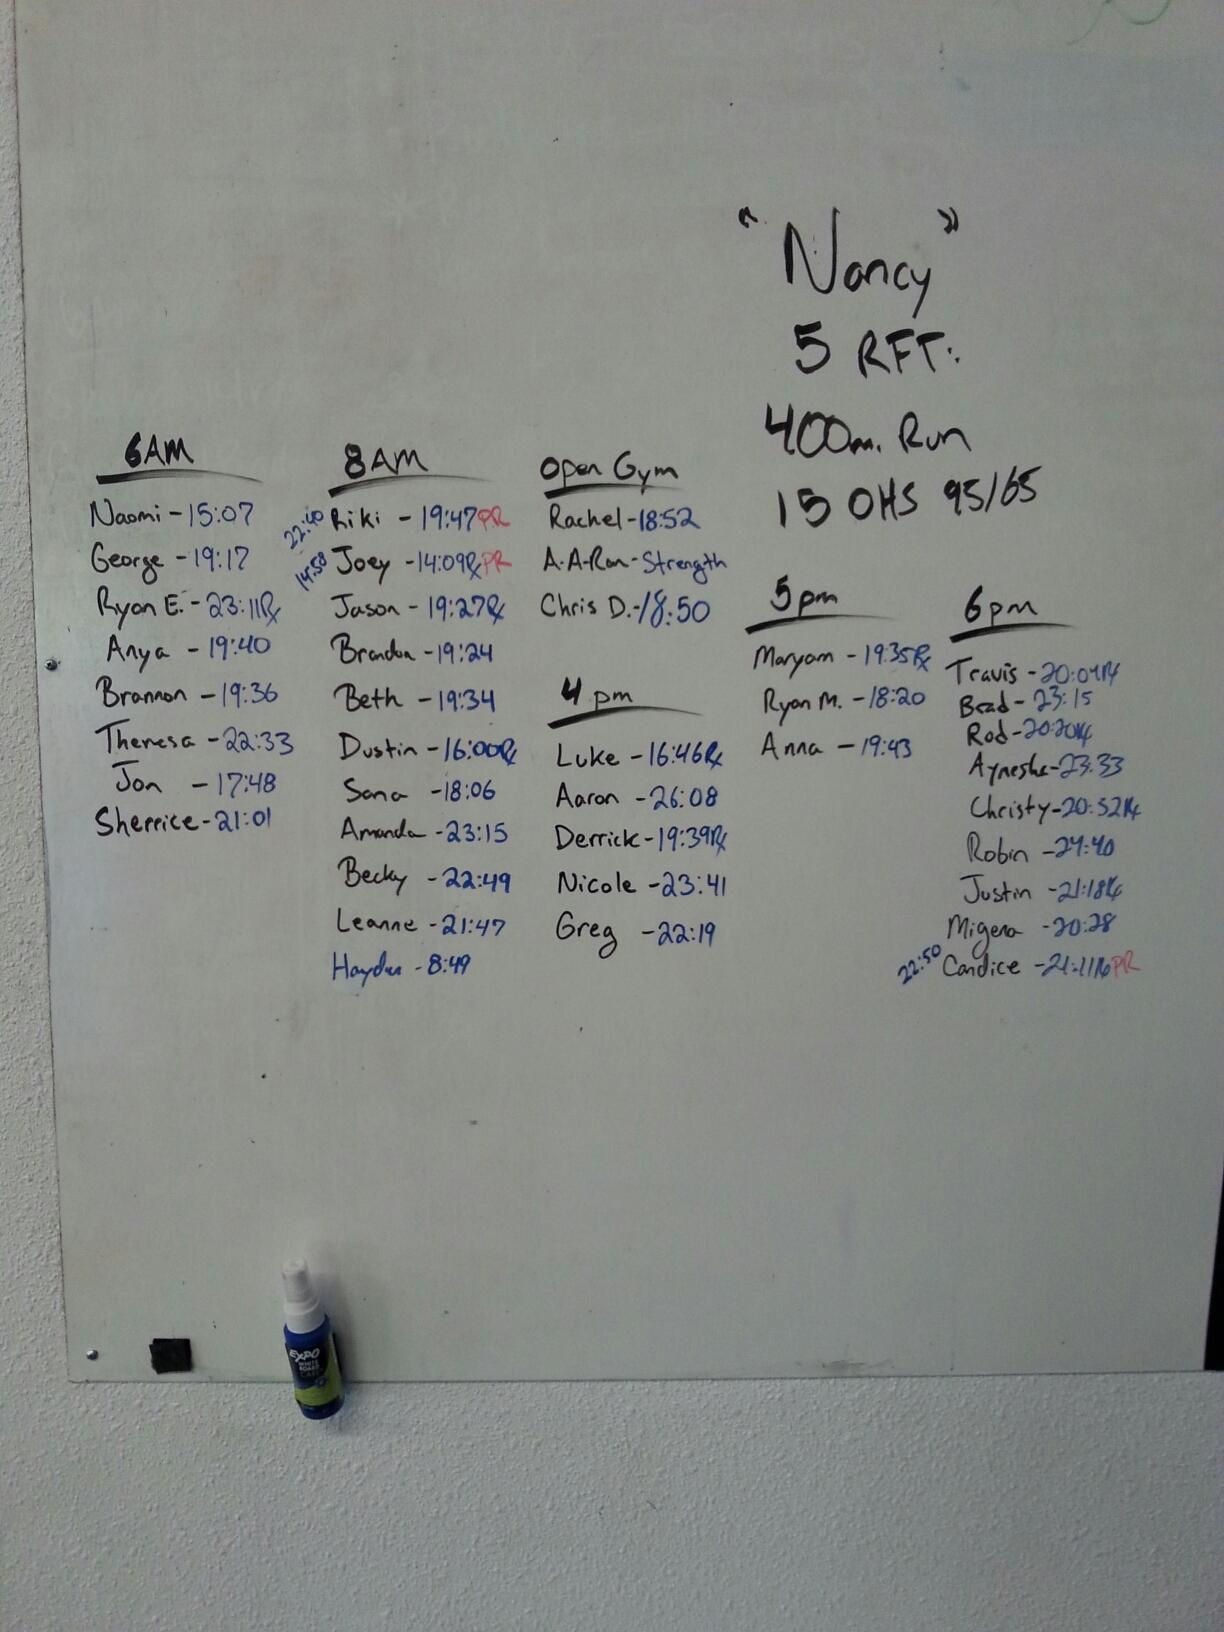 "Nancy"
5 RFT:
400m. Run
15 OHS 95/65
6AM
Naomi - 15:07
George - 19:17
Ryan E. - 23:11Rx
Anya - 19:40
Brannon - 19:36
Theresa - 22:33
Jon - 17:48
Sherrice - 21:01
8AM
22:40 Riki - 19:47 PR
14:58 Joey - 14:09Rx PR
Jason - 19:27Rx
Brandon - 19:24
Beth - 19:34
Dustin - 16:00Rx
Sana - 18:06
Amanda - 23:15
Becky - 22:49
Leanne - 21:47
Hayden - 8:49
Open Gym
Rachel - 18:52
A-A-Ron - Strength
Chris D. - 18:50
4 pm
Luke - 16:46Rx
Aaron - 26:08
Derrick - 19:39Rx
Nicole - 23:41
Greg - 22:19
5pm
Maryam - 19:35Rx
Ryan M. - 18:20
Anna - 19:43
6pm
Travis - 20:04Rx
Brad - 23:15
Rod - 20:20Rx
Aynesha - 23:33
Christy - 20:32Rx
Robin - 24:40
Justin - 21:18Rx
Migena - 20:28
22:50 Candice - 21:11Rx PR
EXPO
WHITE
BOARD
CARE